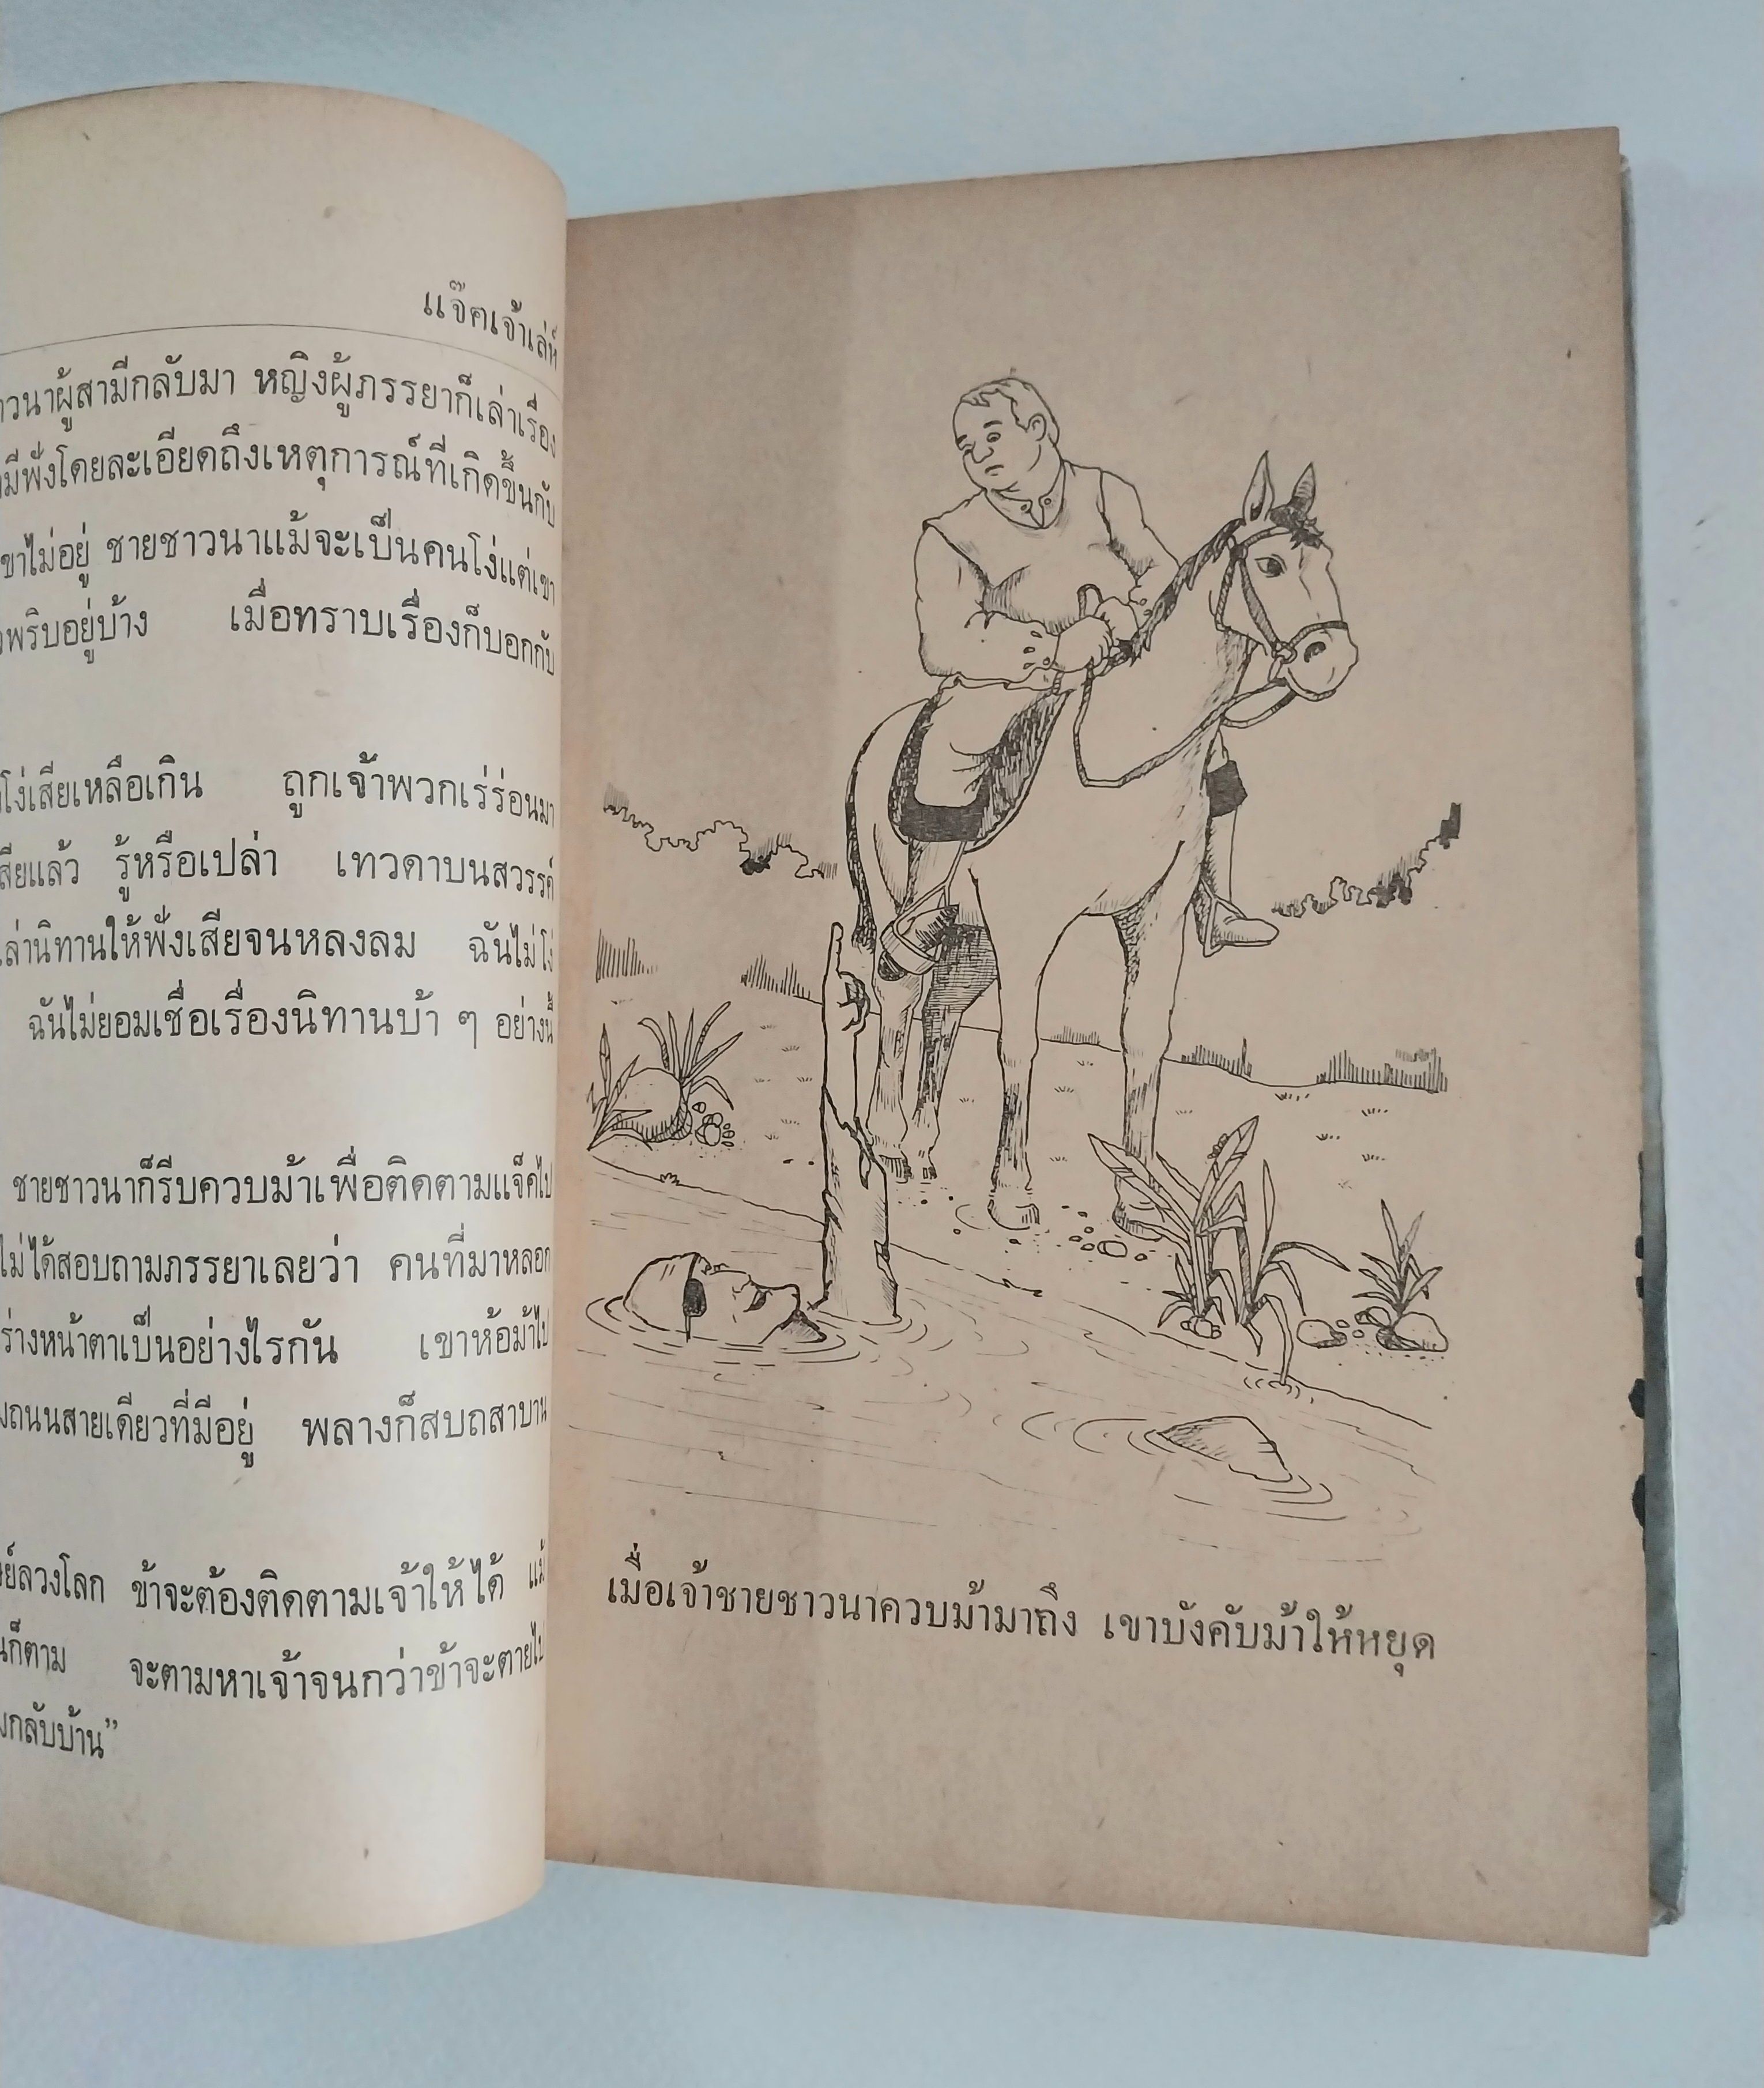 แจ๊คเจ้าเล่ห์
าวนาผู้สามีกลับมา หญิงผู้ภรรยาก็เล่าเรื่อง
มีฟังโดยละเอียดถึงเหตุการณ์ที่เกิดขึ้นกับ
ขาไม่อยู่ ชายชาวนาแม้จะเป็นคนโง่แต่เขา
พริบอยู่บ้าง เมื่อทราบเรื่องก็บอกกับ
โง่เสียเหลือเกิน ถูกเจ้าพวกเร่ร่อนมา
สียแล้ว รู้หรือเปล่า เทวดาบนสวรรค์
ล่านิทานให้ฟังเสียจนหลงลม ฉันไม่โง่
ฉันไม่ยอมเชื่อเรื่องนิทานบ้า ๆ อย่างนี้
ชายชาวนาก็รีบควบม้าเพื่อติดตามแจ็คไป
ไม่ได้สอบถามภรรยาเลยว่า คนที่มาหลอก
ร่างหน้าตาเป็นอย่างไรกัน เขาห้อม้าไป
ถนนสายเดียวที่มีอยู่ พลางก็สบถสาบาน
ย์ลวงโลก ข้าจะต้องติดตามเจ้าให้ได้ แม้
นก็ตาม จะตามหาเจ้าจนกว่าข้าจะตายไป
กลับบ้าน”
เมื่อเจ้าชายชาวนาควบม้ามาถึง เขาบังคับม้าให้หยุด